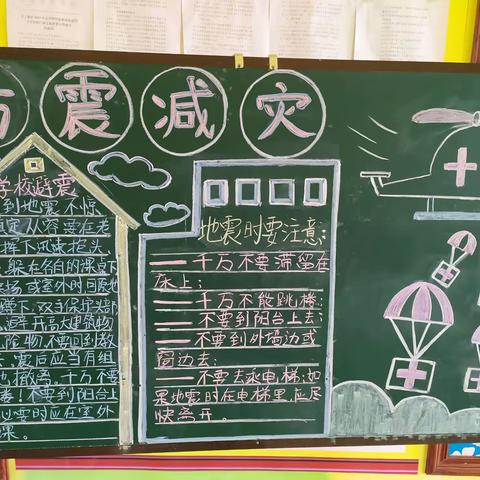 防震减灾
学校避震
到地震不惊
镇定从容在老
挥下迅速抱头
躲在各自的课桌下
操场或室外时可原地
蹲下,双手保护头部
避开高大建筑物
险物,不要回到教
震后应当有组
地撤离,千万不要
楼!不要到阳台上
必要时应在室外
课。
地震时要注意:
——千万不要滞留在
床上;
——千万不能跳楼;
——不要到阳台上去;
——不要到外墙边或
窗边去;
——不要去乘电梯;如
果地震时在电梯里应尽
快离开。